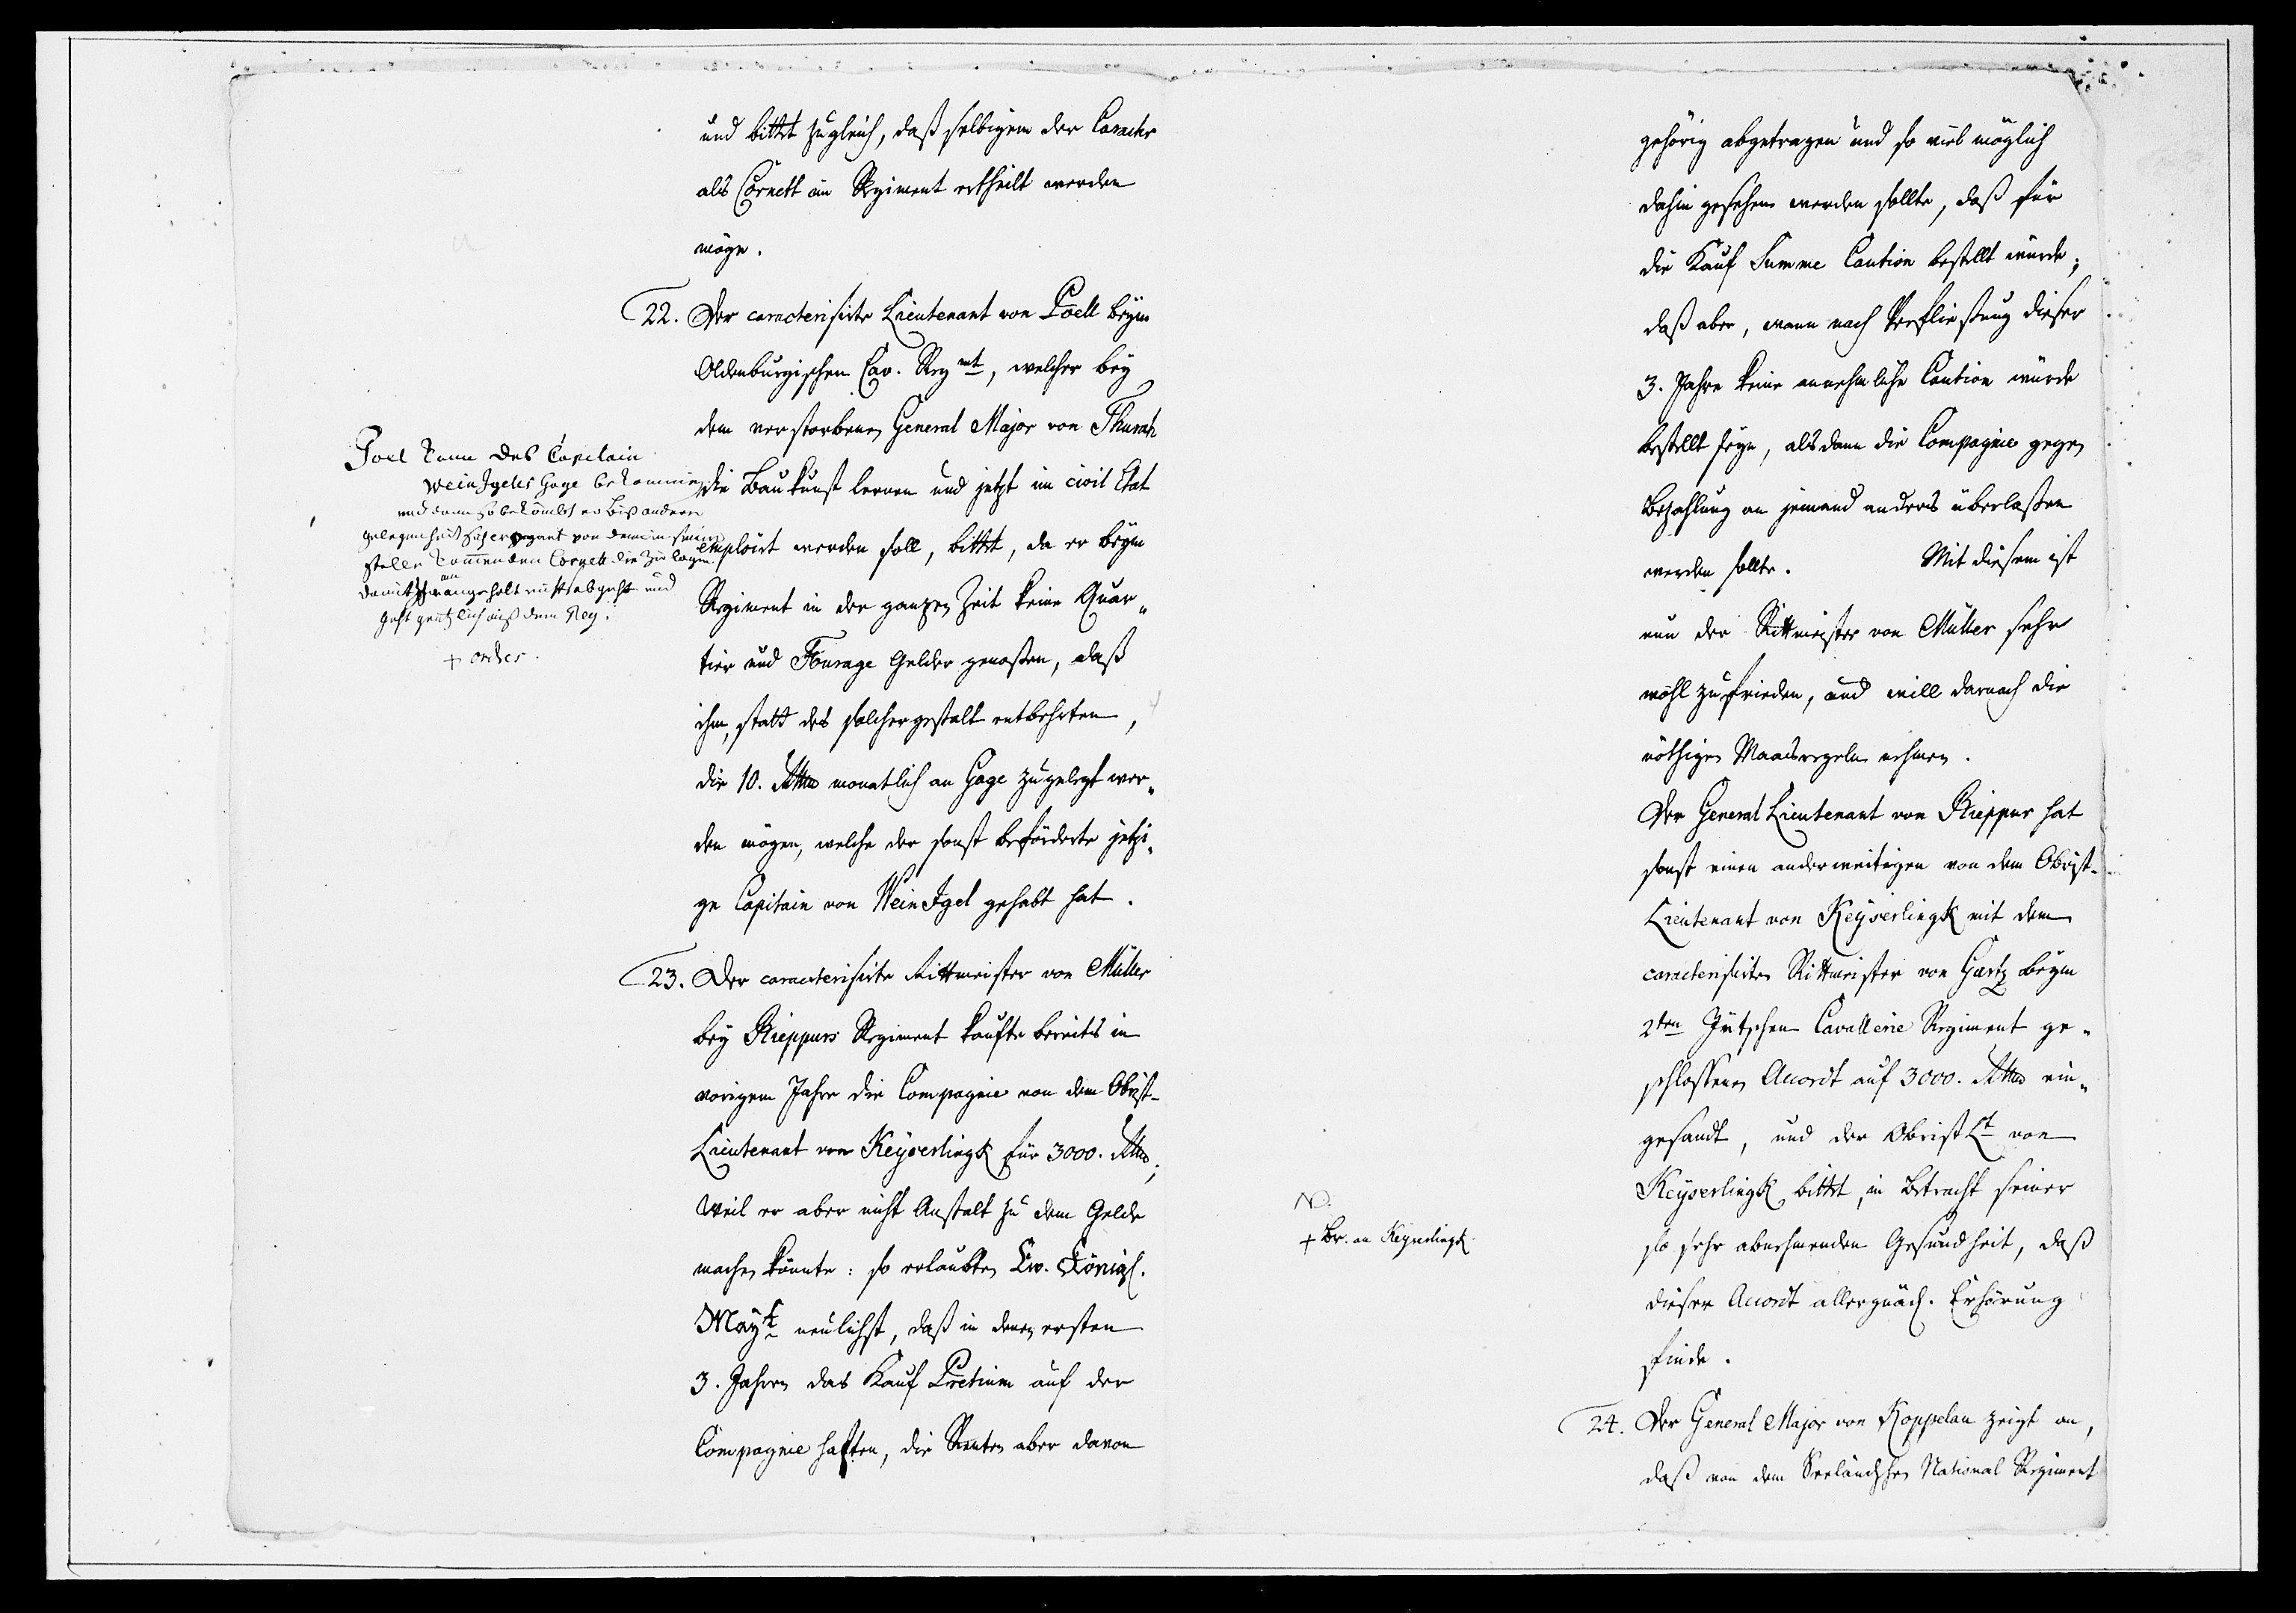 und bittet zugleich, daß selbigem der Caracter
als Cornett im Regiment ertheilt werden
möge.
22. Der caracterisirte Lieutenant von Poell beym
Oldenburgischen Cav. Regmt, welcher bey
dem verstorbenen General Major von Thurah
die Baukunst lernen und jetzt im civil Etat
emploirt werden soll, bittet, da er beym
Regiment in der ganzen Zeit keine Quar„
tier und Fourage Gelder genoßen, daß
ihm, statt des solchergestalt entbehrten,
die 10. Rthlr monatlich an Gage zugelegt wer„
den mögen, welche der sonst beförderte jetzi„
ge Capitain von WeinIgel gehabt hat.
Poel kann des Capitain
WeinIgels Gage bekommen
und dann so bekömbt er biß andere
gelegenheit von dem in seiner
stelle kommenden Cornett die Zulage
damit nicht abgeht und
geht gentzlich auß dem Reg.
+ ordres.
23. Der caracterisirte Rittmeister von Müller
bey Rieppurs Regiment kaufte bereits in
vorigem Jahre die Compagnie von dem Obrist-
Lieutenant von Keyserlingk für 3000. Rthlr;
Weil er aber nicht Anstalt zu dem Gelde
machen konnte: so erlaubten Ew. Königl.
Mayt neulichst, daß in denen ersten
3. Jahren das Kauf Pretium auf der
Compagnie haften, die Renten aber davon
gehörig abgetragen und so viel möglich
dahin gesehen werden sollte, daß für
die Kauf Summe Caution bestellt würde;
daß aber, wann nach Verfließung dieser
3. Jahre keine annehmliche Caution würde
bestellt seyn, alsdann die Compagnie gegen
Bezahlung an jemand anders überlaßen
werden sollte. Mit diesem ist
nun der Rittmeister von Müller sehr
wohl zufrieden, und will darnach die
nöthigen Maasregeln nehmen.
Der General Lieutenant von Rieppur hat
sonst einen anderweitigen von dem Obrist-
Lieutenant von Keyserlingk mit dem
caracterisirten Rittmeister von Gartz beym
2ten Jütschen Cavallerie Regiment ge„
schlossenen Accord auf 3000. Rthlr ein„
gesandt, und der Obrist Lt von
Keyserlingk bittet, in Betracht seiner
so sehr abnehmenden Gesundheit, daß
dieser Accord allergnäd. Erhörung
finde.
N.
+ Br. an Keyserlingk
24. Der General Major von Koppelau zeigt an,
daß von dem Seeländschen National Regiment